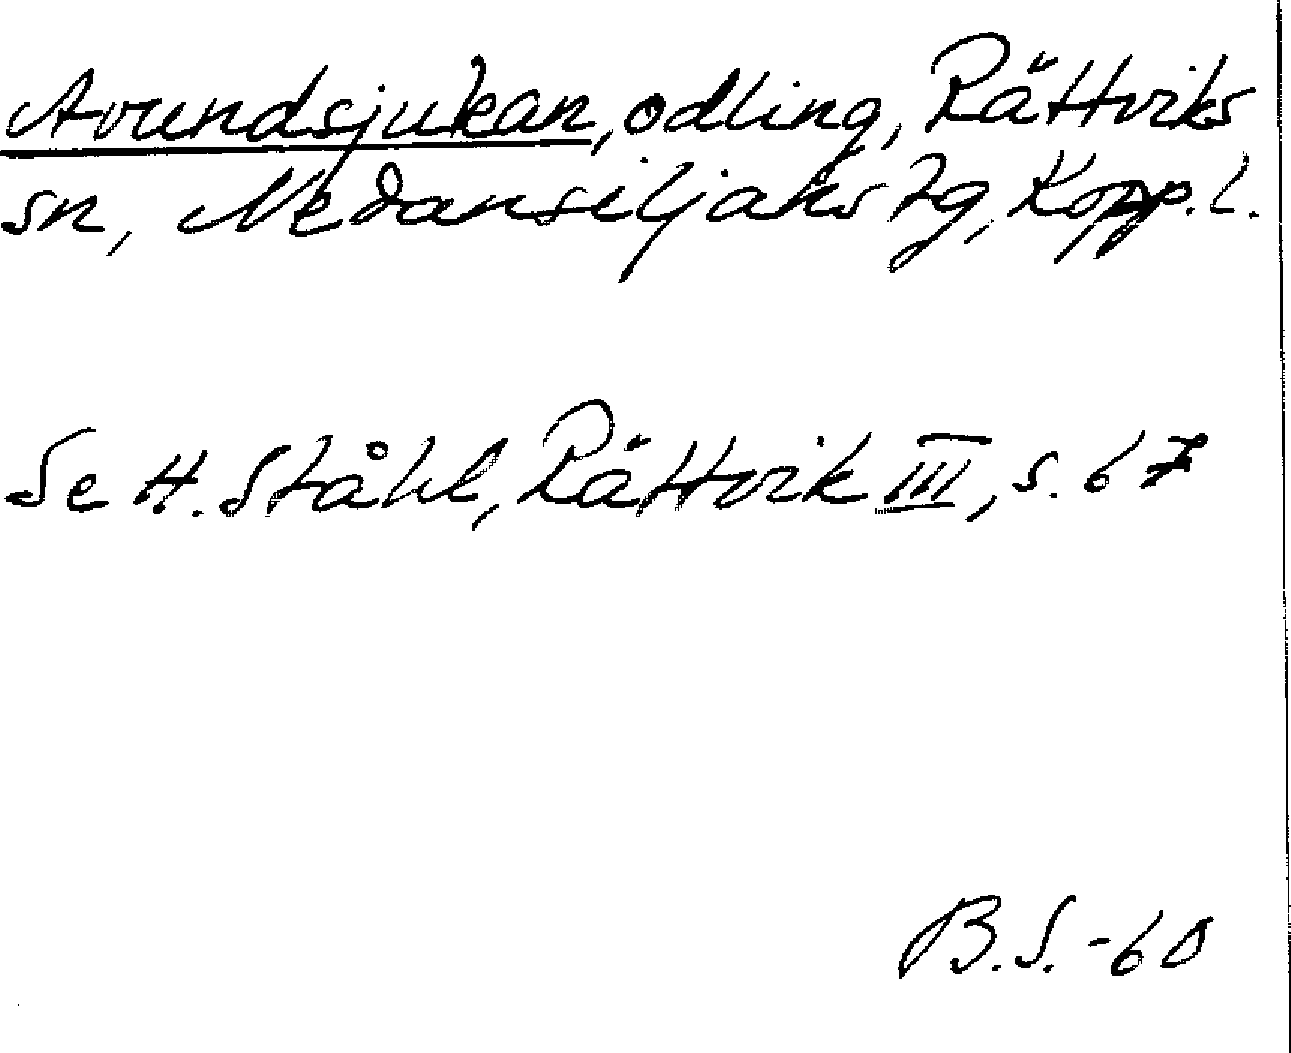 Avundsjukan, odling, Rättviks
sn, Nedansiljans tg, Kopp. l.
Se H. Ståhl, Rättvik III, s. 67
B.S. -60